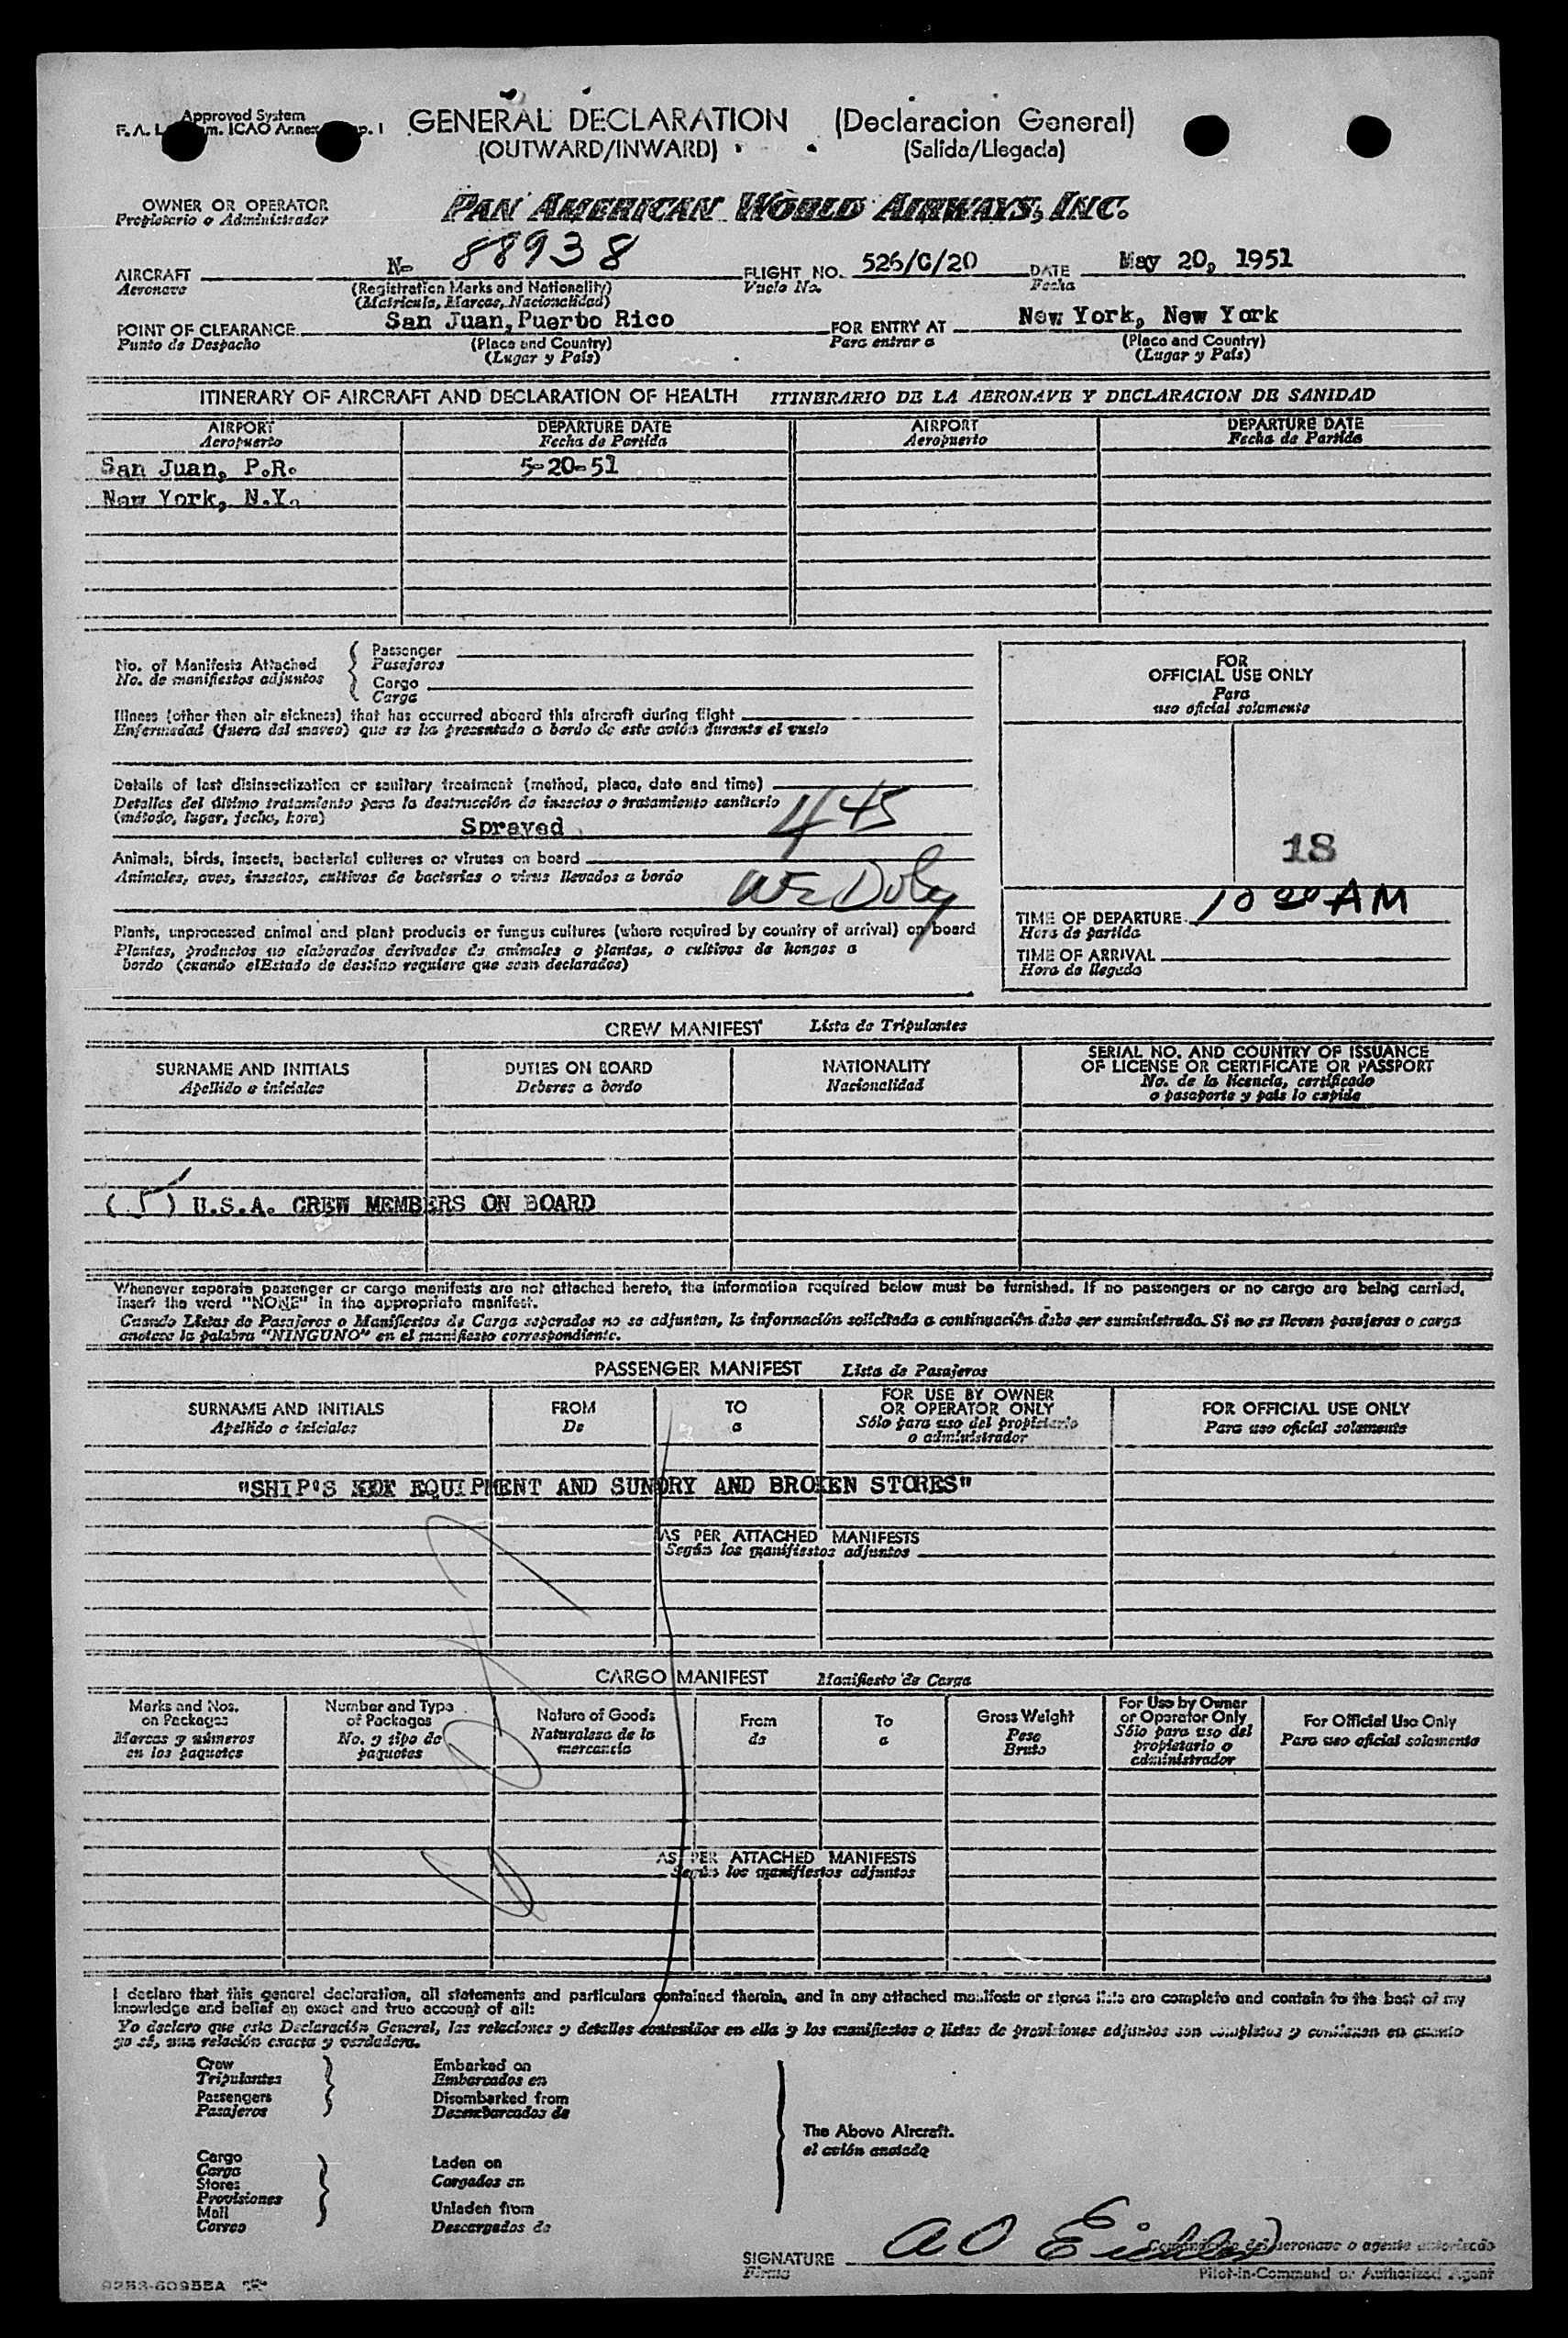 Approved System
GENERAL DECLARATION (Declaracion General)
(OUTWARD/INWARD) (Salida/Llegada)
OWNER OR OPERATOR
Propietario o Administrador
PAN AMERICAN WORLD AIRWAYS, INC.
AIRCRAFT N- 88938 FLIGHT NO. 526/C/20 DATE May 20, 1951
Aeronave (Registration Marks and Nationality) Vuelo No. Fecha
(Matricula, Marcas, Nacionalidad)
POINT OF CLEARANCE San Juan, Puerto Rico FOR ENTRY AT New York, New York
Punto de Despacho (Place and Country) Para entrar a (Place and Country)
(Lugar y País) (Lugar y País)
ITINERARY OF AIRCRAFT AND DECLARATION OF HEALTH ITINERARIO DE LA AERONAVE Y DECLARACION DE SANIDAD
AIRPORT DEPARTURE DATE AIRPORT DEPARTURE DATE
Aeropuerto Fecha de Partida Aeropuerto Fecha de Partida
San Juan, P.R. 5-20-51
New York, N.Y.
No. of Manifests Attached
No. de manifiestos adjuntos
Passenger
Pasajeros
Cargo
Carga
FOR
OFFICIAL USE ONLY
Para
uso oficial solamente
Illness (other than air sickness) that has occurred aboard this aircraft during flight
Enfermedad (fuera del mareo) que se ha presentado a bordo de este avión durante el vuelo
Details of last disinsectization or sanitary treatment (method, place, date and time)
Detalles del último tratamiento para la destrucción de insectos o tratamiento sanitario
(método, lugar, fecha, hora) Sprayed 445
18
Animals, birds, insects, bacterial cultures or viruses on board
Animales, aves, insectos, cultivos de bacterias o virus llevados a bordo
Plants, unprocessed animal and plant products or fungus cultures (where required by country of arrival) on board
Plantas, productos no elaborados derivados de animales o plantas, o cultivos de hongos a
bordo (cuando elEstado de destino requiere que sean declarados)
TIME OF DEPARTURE 10 20 AM
Hora de partida
TIME OF ARRIVAL
Hora de llegada
CREW MANIFEST Lista de Tripulantes
SURNAME AND INITIALS DUTIES ON BOARD NATIONALITY SERIAL NO. AND COUNTRY OF ISSUANCE
OF LICENSE OR CERTIFICATE OR PASSPORT
Apellido e iniciales Deberes a bordo Nacionalidad No. de la licencia, certificado
o pasaporte y país lo expide
( 5 ) U.S.A. CREW MEMBERS ON BOARD
Whenever separate passenger or cargo manifests are not attached hereto, the information required below must be furnished. If no passengers or no cargo are being carried,
insert the word "NONE" in the appropriate manifest.
Cuando Listas de Pasajeros o Manifiestos de Carga separados no se adjuntan, la información solicitada a continuación debe ser suministrada. Si no se lleven pasajeros o carga
anotese la palabra "NINGUNO" en el manifiesto correspondiente.
PASSENGER MANIFEST Lista de Pasajeros
SURNAME AND INITIALS FROM TO FOR USE BY OWNER
OR OPERATOR ONLY FOR OFFICIAL USE ONLY
Apellido e iniciales De a Sólo para uso del propietario
o administrador Para uso oficial solamente
"SHIP'S EQUIPMENT AND SUNDRY AND BROKEN STORES"
AS PER ATTACHED MANIFESTS
Según los manifiestos adjuntos
CARGO MANIFEST Manifiesto de Carga
Marks and Nos.
on Packages
Marcas y números
en los paquetes
Number and Type
of Packages
No. y tipo de
paquetes
Nature of Goods
Naturaleza de la
mercancía
From
de
To
a
Gross Weight
Peso
Bruto
For Use by Owner
or Operator Only
Sólo para uso del
propietario o
administrador
For Official Use Only
Para uso oficial solamente
AS PER ATTACHED MANIFESTS
Según los manifiestos adjuntos
I declare that this general declaration, all statements and particulars contained therein, and in any attached manifests or stores lists are complete and contain to the best of my
knowledge and belief an exact and true account of all:
Yo declaro que esta Declaración General, las relaciones y detalles contenidos en ella y los manifiestos o listas de provisiones adjuntos son completos y contienen en cuanto
yo sé, una relación exacta y verdadera.
Crew
Tripulantes
Passengers
Pasajeros
Embarked on
Embarcados en
Disembarked from
Desembarcados de
The Above Aircraft.
el avión anotado
Cargo
Carga
Stores
Provisiones
Mail
Correo
Laden on
Cargados en
Unladen from
Descargados de
SIGNATURE AO Eichler
Firma
Comandante del aeronave o agente autorizado
Pilot-in-Command or Authorized Agent